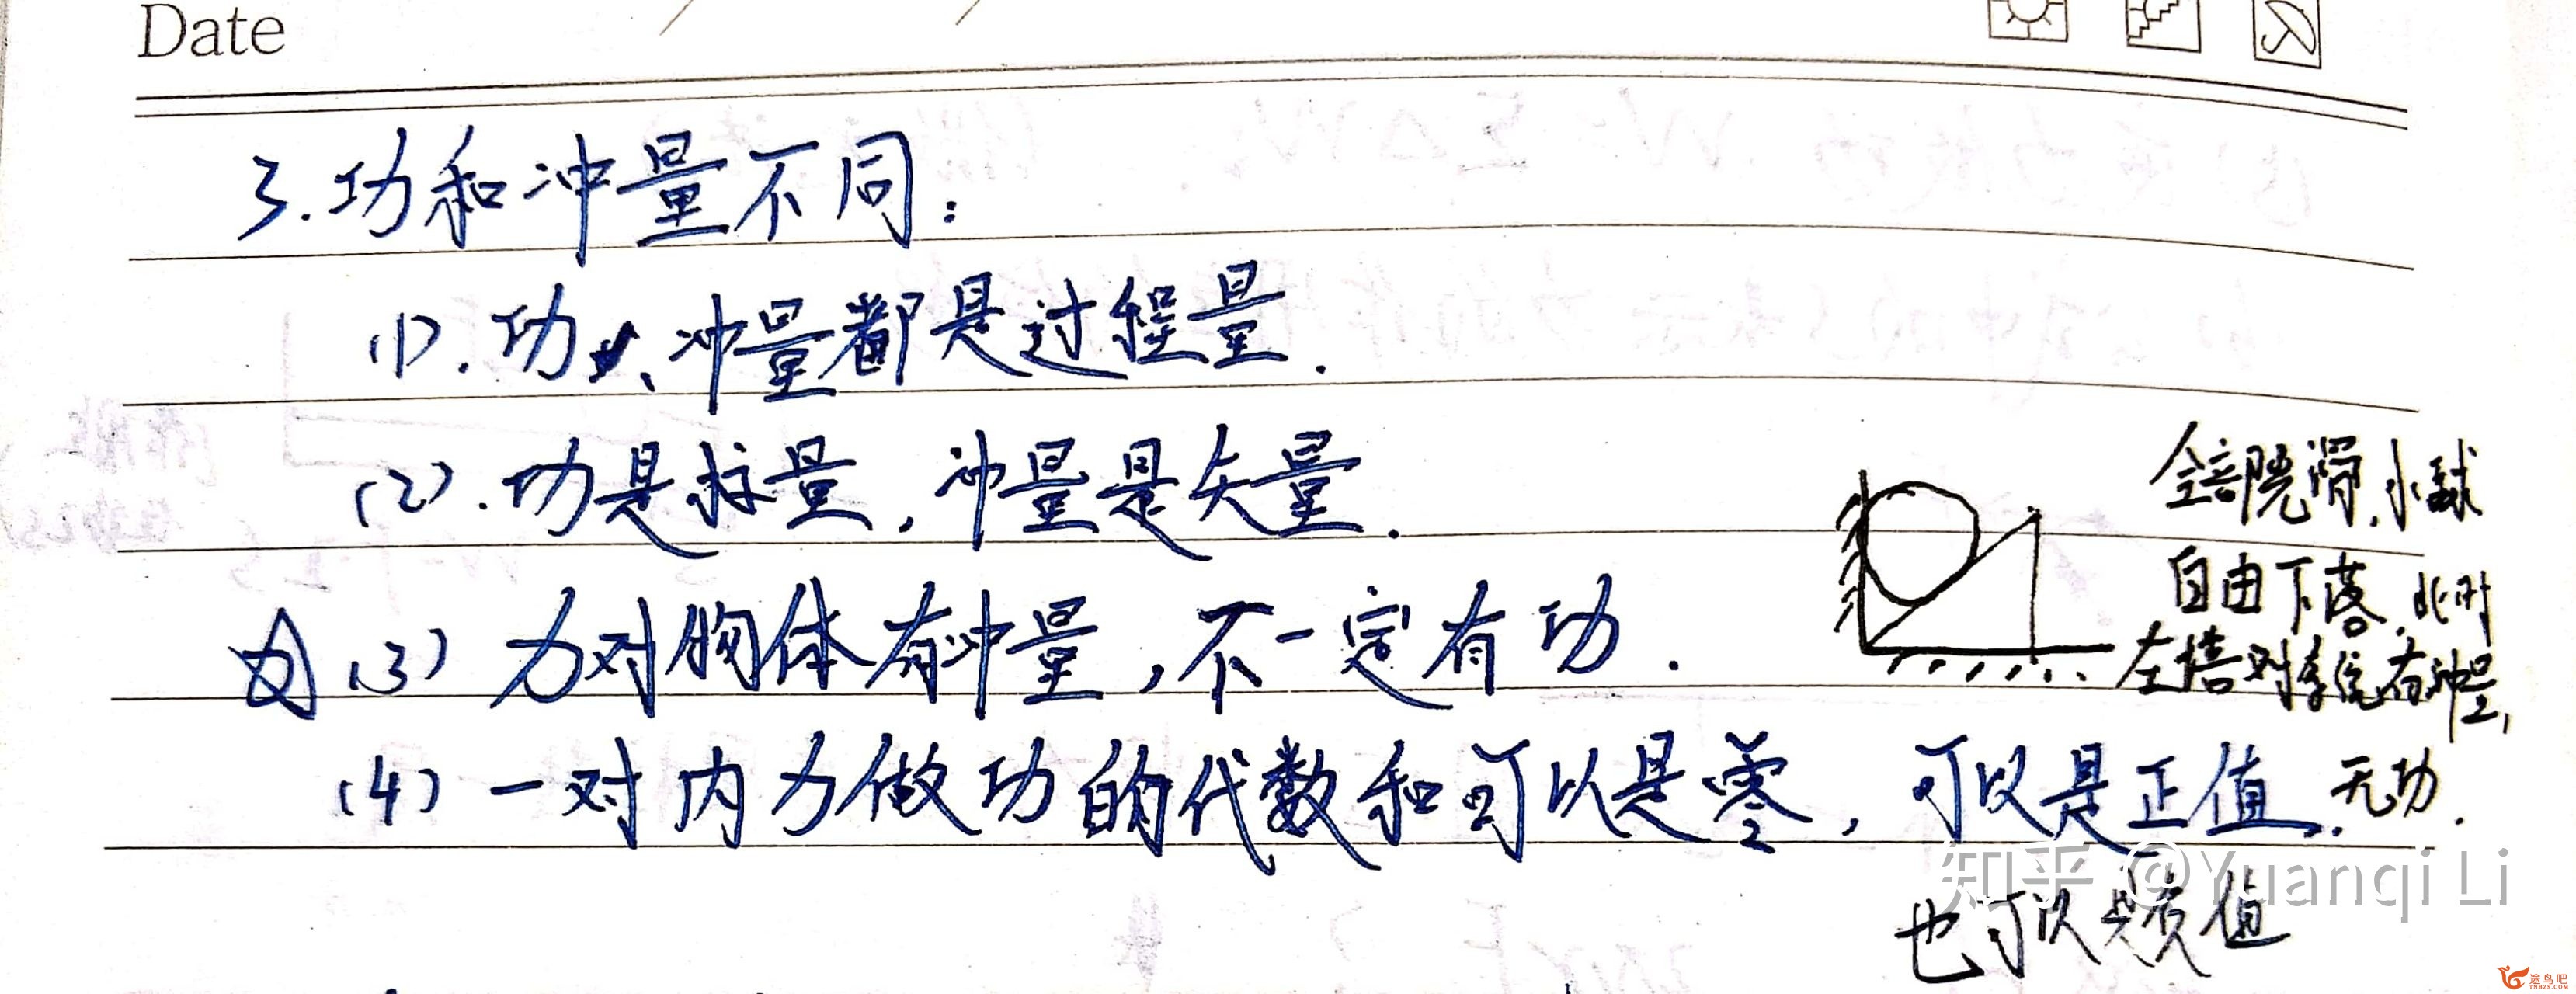 Date
3.功和冲量不同:
(1).功、冲量都是过程量.
(2).功是标量,冲量是矢量.
全部光滑,小球
自由下落,此时
(3) 力对物体有冲量,不一定有功.
左墙对系统有冲量,
无功.
(4) 一对内力做功的代数和可以是零,可以是正值.
也可以是负值
知乎 @Yuanqi Li
途鸟吧
TNBZS.COM